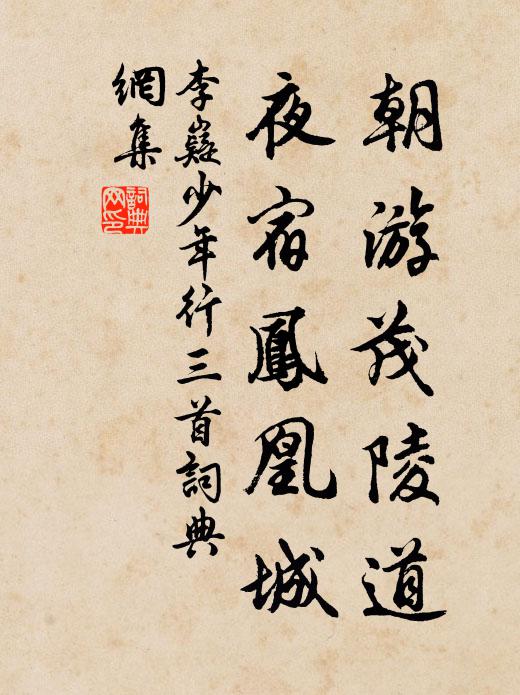 朝游茂陵道
夜宿鳳凰城
李嶷少年行三首詞典
網集
詞典網印